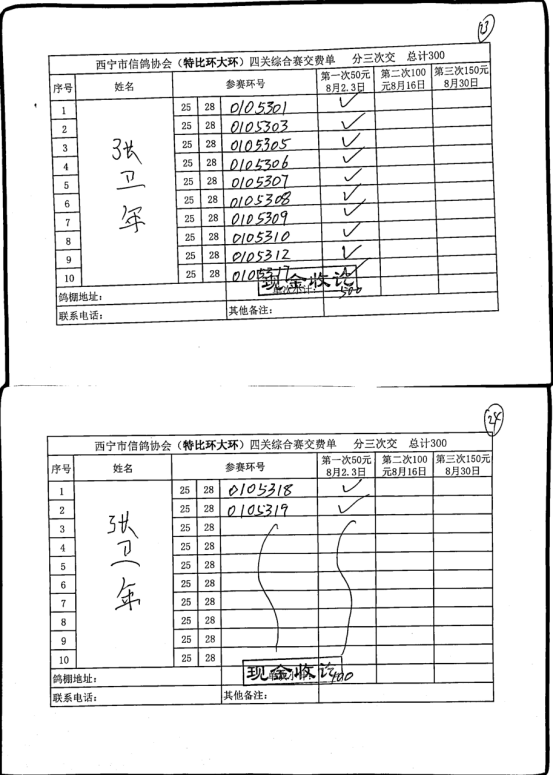 23
西宁市信鸽协会（特比环大环）四关综合赛交费单 分三次交 总计300
序号 姓名 参赛环号 第一次50元8月2.3日 第二次100元8月16日 第三次150元8月30日
1 25 28 0105301 ✓
2 25 28 0105303 ✓
3 张 25 28 0105305 ✓
4 25 28 0105306 ✓
5 卫 25 28 0105307 ✓
6 25 28 0105308 ✓
7 年 25 28 0105309 ✓
8 25 28 0105310 ✓
9 25 28 0105312 ✓
10 25 28 0105317 ✓
鸽棚地址： 现金收讫 500
联系电话： 其他备注：
24
西宁市信鸽协会（特比环大环）四关综合赛交费单 分三次交 总计300
序号 姓名 参赛环号 第一次50元8月2.3日 第二次100元8月16日 第三次150元8月30日
1 25 28 0105318 ✓
2 25 28 0105319 ✓
3 张 25 28
4 25 28
5 卫 25 28
6 25 28
7 年 25 28
8 25 28
9 25 28
10 25 28
鸽棚地址： 现金收讫 100
联系电话： 其他备注：